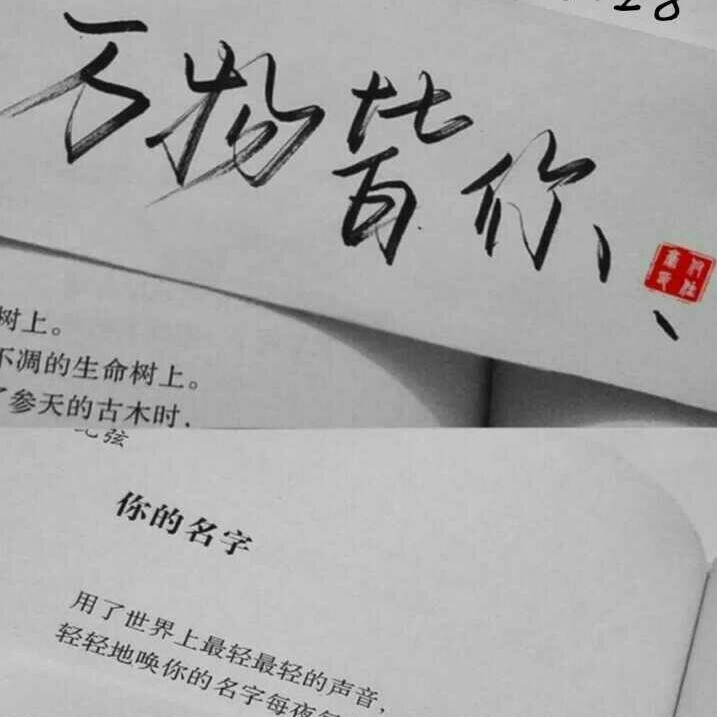 28
万物皆你、、
树上。
不凋的生命树上。
了参天的古木时，
弦
你的名字
用了世界上最轻最轻的声音，
轻轻地唤你的名字每夜每